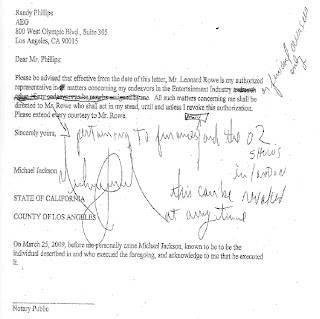 Randy Phillips
AEG
800 West Olympic Blvd., Suite 305
Los Angeles, CA 90015
Dear Mr. Phillips:
Please be advised that effective from the date of this letter, Mr. Leonard Rowe is my authorized
representative in matters concerning my endeavors in the Entertainment Industry
All such matters concerning me shall be
directed to Mr. Rowe who shall act in my stead, until and unless I revoke this authorization.
Please extend every courtesy to Mr. Rowe.
financial overseer
only
Sincerely yours,
pertaining to finances and the O2
shows
in London
Michael Jackson
this can be revoked
at any time
STATE OF CALIFORNIA
COUNTY OF LOS ANGELES
On March 25, 2009, before me personally came Michael Jackson, known to be to be the
individual described in and who executed the foregoing, and acknowledge to me that be executed
it.
Notary Public